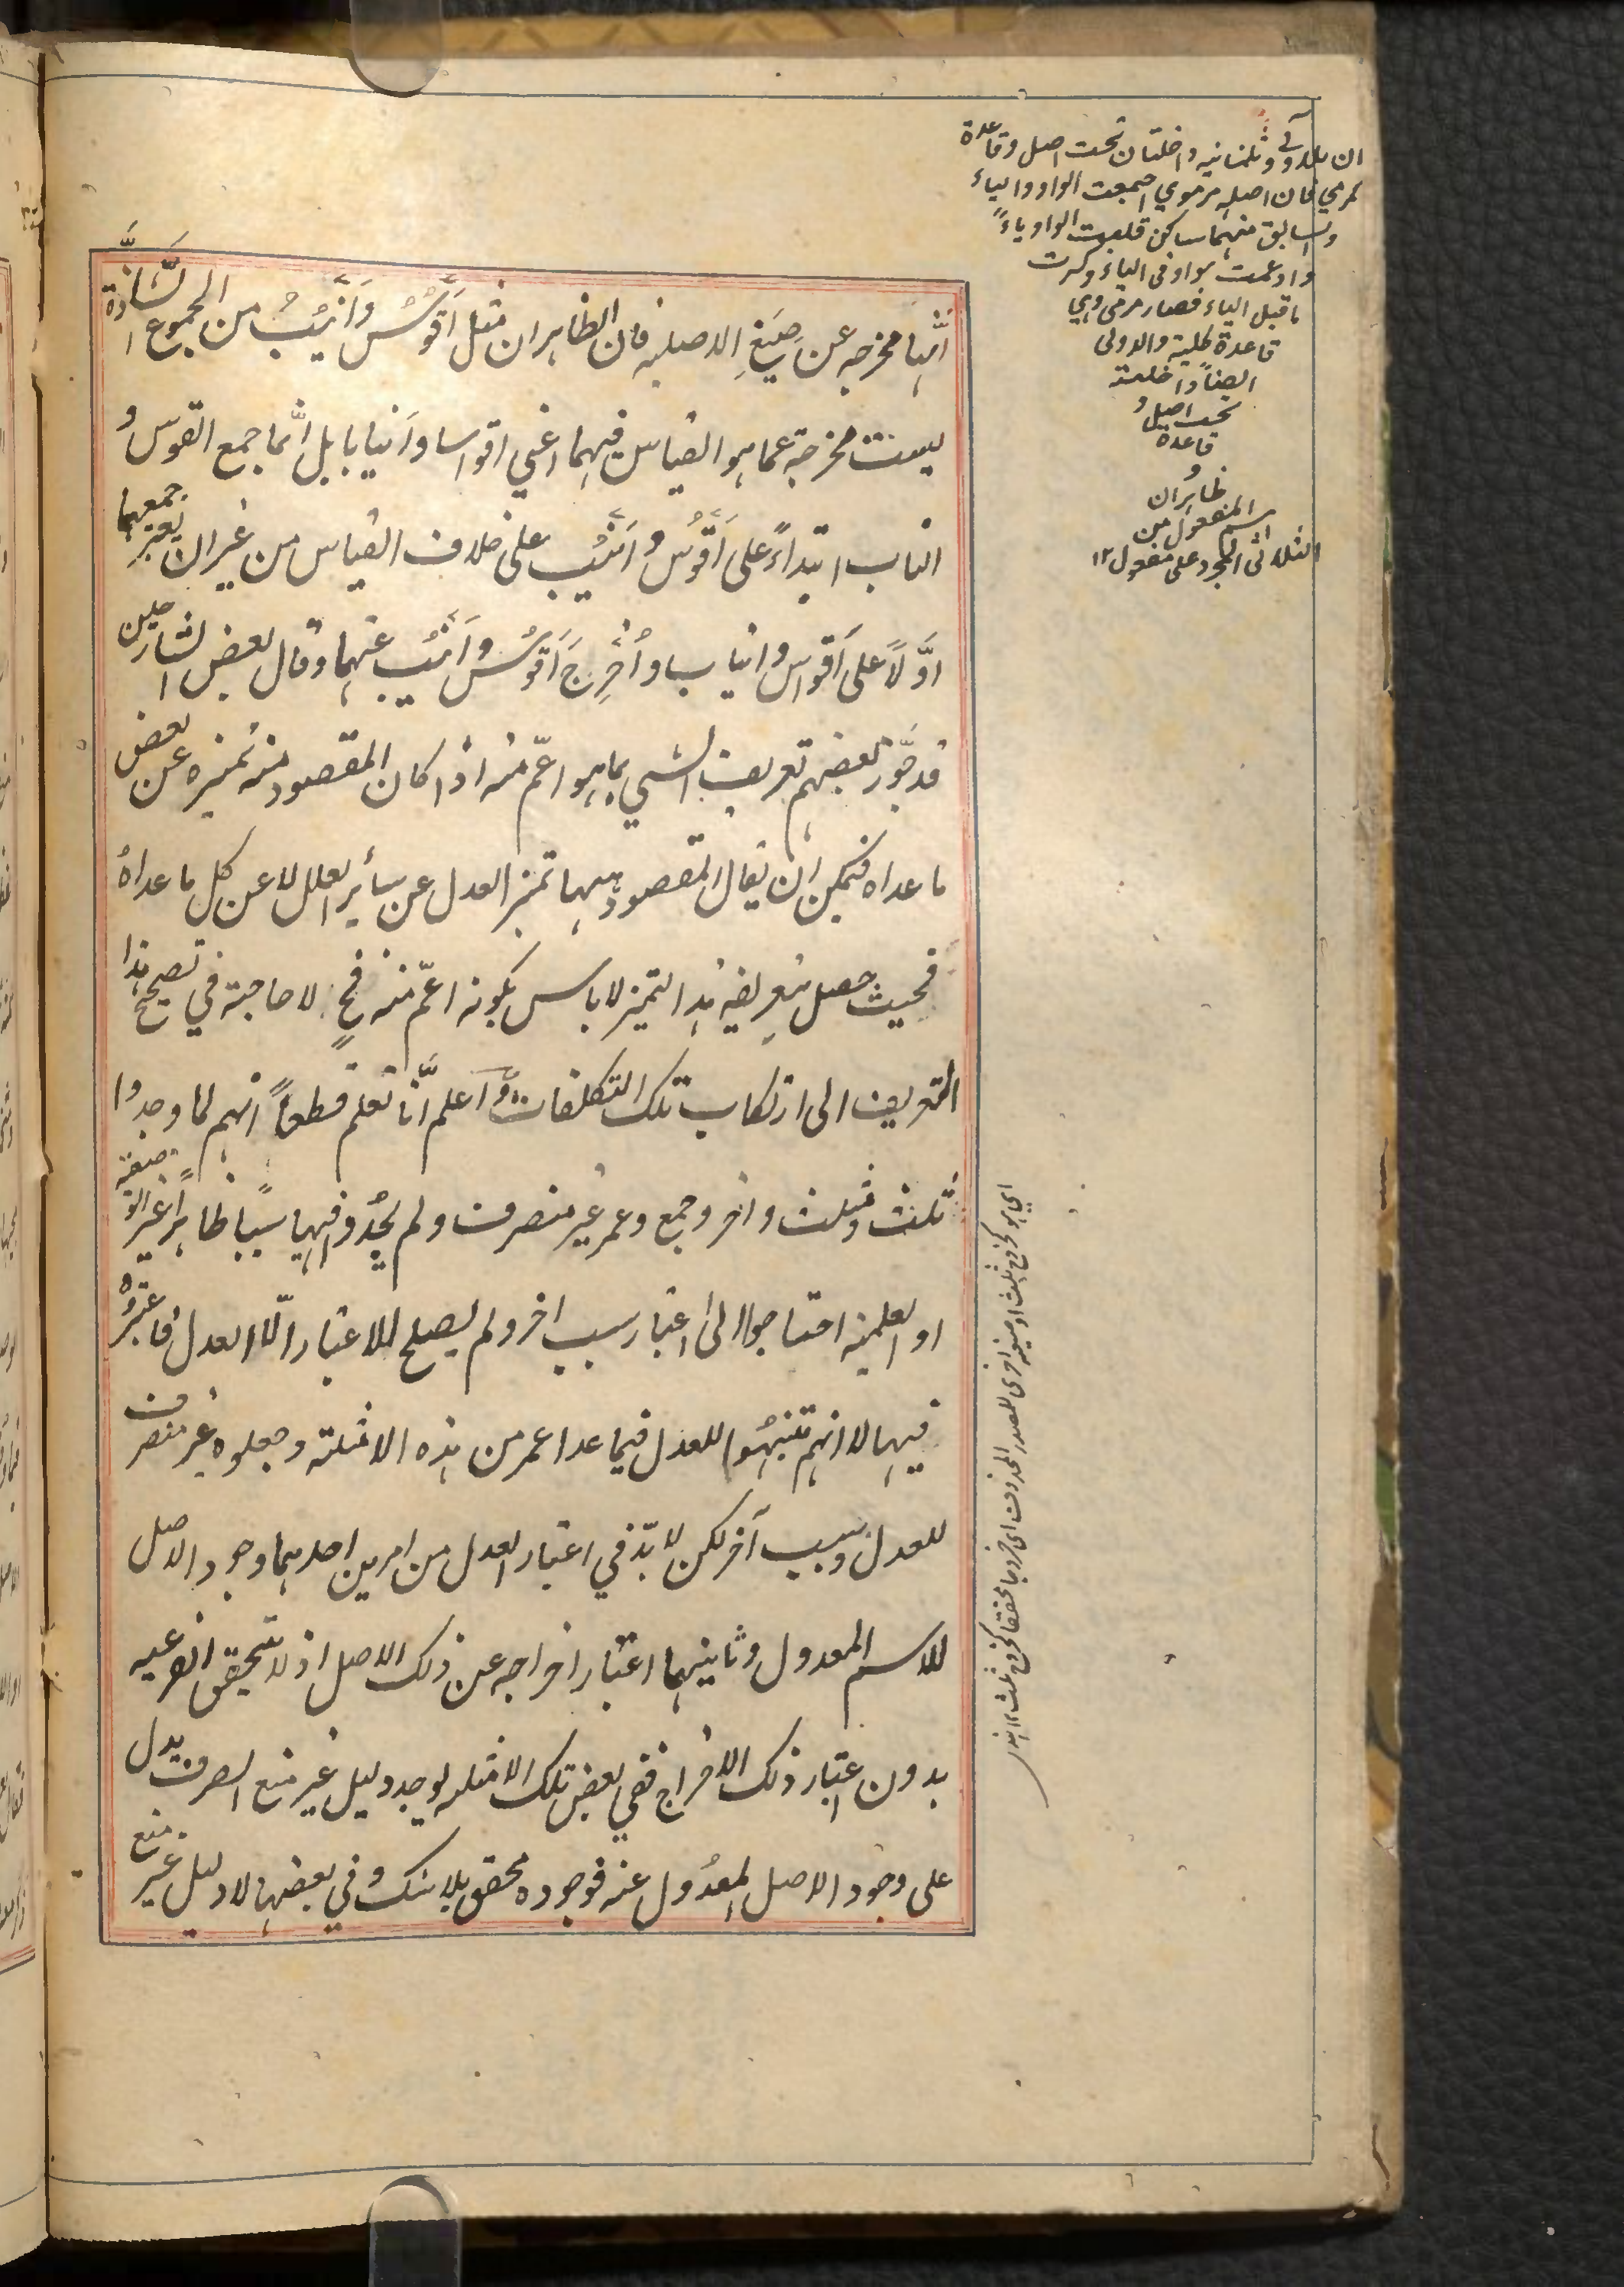 انّها مخرجه عن صِيَغِ الاصليه فان الظاهر ان مثل اَقْوُسٌ وَاَنْيُبُ من الجموع الشَّاذَّة
ليست مخرجة عما هو القياس فيهما اعني اقواسا وَانيابا بل انّما جمع القوس و
الناب ابتداءً على اَقْوُس و اَنْيُب على خلاف القياس من غير ان يعتبر جمعهما
اوّلاً على اَقواس وانياب واُخْرِجَ اَقْوُس وَ اَنْيُب عنهما وقال بعض الشارحين
قد جوّز بعضهم تعريف الشيي بما هو اعمّ منه اذا كان المقصود منه تميزه عن بعض
ما عداه فيمكن ان يقال المقصود ههنا تميز العدل عن سائر العلل لا عن كل ما عداهُ
فحيث حصل بتعريفه هذا التميز لا باس بكونه اعمّ منه فح لا حاجة في تصحيح هذا
التعريف الى ارتكاب تلك التكلفات واعلم انّا نعلم قطعاً انهم لما وجدوا
ثلث ومثلث واخر وجمع وعمر غير منصرف ولم يجدُوا فيها سببًا ظاهراً غير الوصفية
او العلمية احتاجوا الى اعتبار سبب اخر ولم يصلح للاعتبار الّا العدل فاعتبروه
فيها لا انهم تنبهُوا للعدل فيما عدا عمر من هذه الامثلة وجعلوه غير منصرف
للعدل وسبب آخر لكن لا بدّ في اعتبار العدل من امرين احدهما وجود الاصل
للاسم المعدول وثانيهما اعتبار اخراجه عن ذلك الاصل اذ لا تتحقق الفرعيه
بدون اعتبار ذلك الاخراج ففي بعض تلك الامثله يوجد دليل غير منع الصرف يدل
على وجود الاصل المعدُول عنه فوجوده محقق بلا شك وفي بعضها لا دليل غير منع
داخلتان تحت اصل وقاعدة
كمرمي فان اصله مرموي اجمعت الواو والياء
والسابق منهما ساكن قلبت الواو ياءً
وادغمت الواو في الياء وكسرت
ما قبل الياء فصار مرمي وهي
قاعدة كلية والاولى
ايضاً داخلة
تحت اصل و
قاعدة
و
ظاهر ان
اسم المفعول من
الثلاثى المجرد على مفعول ١٢
اي هو كخروج ثلث او صيغة اخرى للمصدر المحذوف اى خروجا محققا كخروج ثلث ١٢